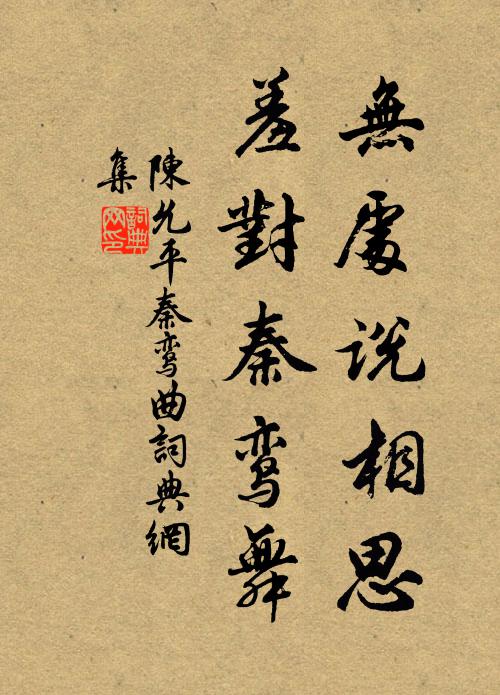 無處說相思
羞對秦鸾舞
陳允平秦鸾曲詞典網
集
詞典
网印